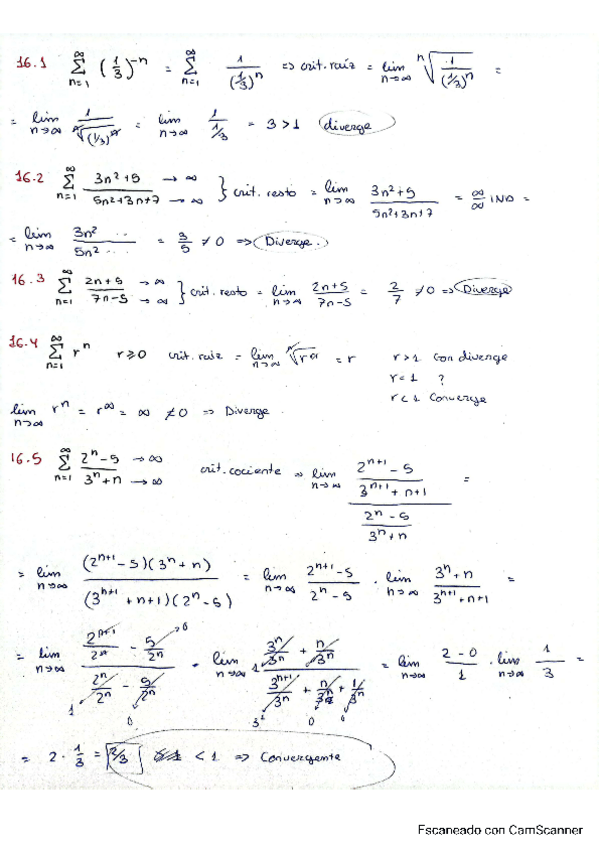 16.1 ∞ Σ n=1 (1/3)^-n = ∞ Σ n=1 1/(1/3)^n => crit. raíz = lim n→∞ n√(1/(1/3)^n) =
= lim n→∞ 1/n√((1/3)^n) = lim n→∞ 1/(1/3) = 3 > 1 diverge
16.2 ∞ Σ n=1 (3n²+5 → ∞)/(5n²+3n+7 → ∞) } crit. resto = lim n→∞ (3n²+5)/(5n²+3n+7) = ∞/∞ IND =
= lim n→∞ (3n² ...)/(5n² ...) = 3/5 ≠ 0 => Diverge.
16.3 ∞ Σ n=1 (2n+5 → ∞)/(7n-5 → ∞) } crit. resto = lim n→∞ (2n+5)/(7n-5) = 2/7 ≠ 0 => Diverge
16.4 ∞ Σ n=1 r^n r ≥ 0 crit. raiz = lim n→∞ n√(r^n) = r r > 1 diverge
r = 1 ?
r < 1 Converge
lim n→∞ r^n = r^∞ = ∞ ≠ 0 => Diverge
16.5 ∞ Σ n=1 (2^n - 5 → ∞)/(3^n + n → ∞) crit. cociente => lim n→∞ ((2^(n+1) - 5)/(3^(n+1) + n+1))/((2^n - 5)/(3^n + n)) =
= lim n→∞ ((2^(n+1) - 5)(3^n + n))/((3^(n+1) + n+1)(2^n - 5)) = lim n→∞ (2^(n+1) - 5)/(2^n - 5) · lim n→∞ (3^n + n)/(3^(n+1) + n+1) =
= lim n→∞ (2^(n+1)/2^n - 5/2^n → 0)/(2^n/2^n → 1 - 5/2^n → 0) · lim n→∞ (3^n/3^n → 1 + n/3^n)/(3^(n+1)/3^n → 3 + n/3^n → 0 + 1/3^n → 0) = lim n→∞ (2-0)/1 · lim n→∞ 1/3 =
= 2 · 1/3 = 2/3 < 1 => Convergente
Escaneado con CamScanner